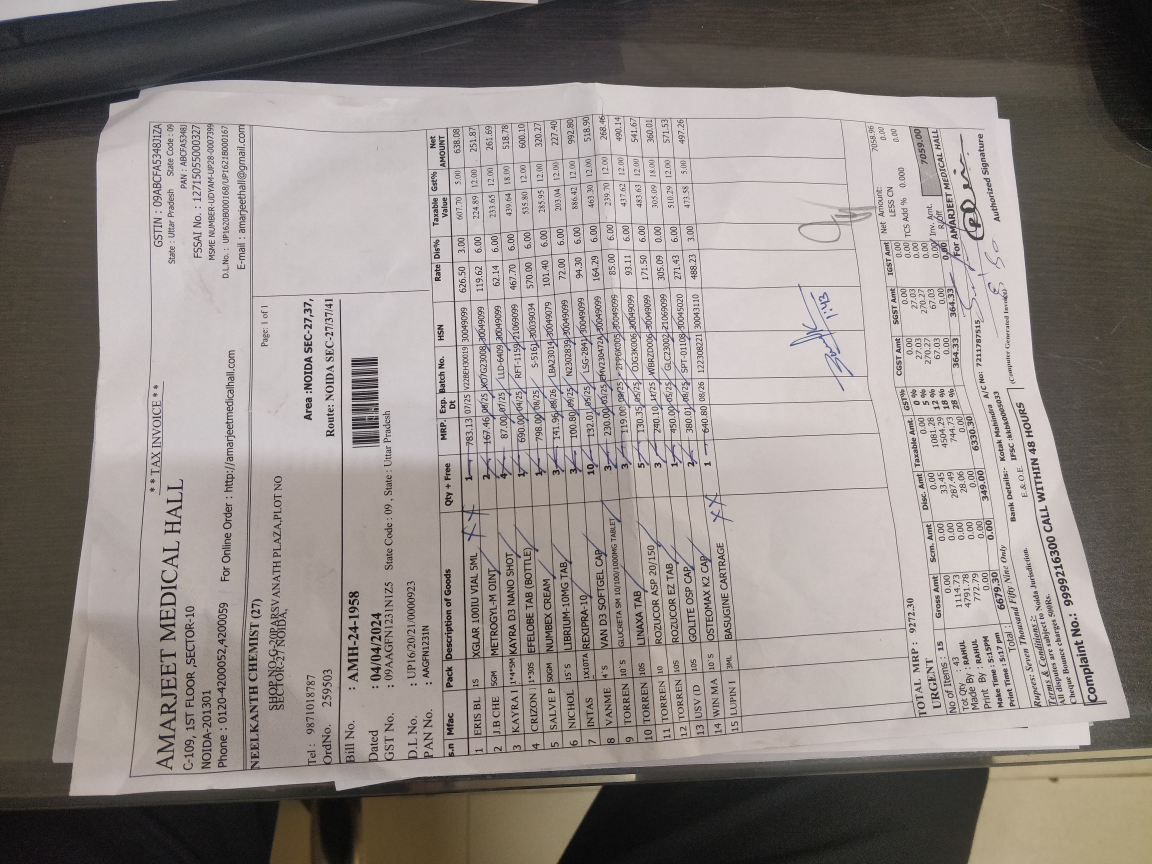 **TAX INVOICE **
AMARJEET MEDICAL HALL
C-109, 1ST FLOOR ,SECTOR-10
NOIDA-201301
Phone : 0120-4200052,4200059 For Online Order : http://amarjeetmedicalhall.com
GSTIN : 09ABCFA5348J1ZA
State : Uttar Pradesh State Code : 09
PAN : ABCFA5348J
FSSAI No. : 12715055000327
MSME NUMBER-UDYAM-UP28-0007399
D.L.No. : UP1620B000168/UP1621B000167
E-mail : amarjeethall@gmail.com
NEELKANTH CHEMIST (27)
SHOP NO.G-20PARSVANATH PLAZA,PLOT NO
SECTOR-27 NOIDA,
Page: 1 of 1
Tel : 9871018787
OrdNo. 259503
Area :NOIDA SEC-27,37,
Route: NOIDA SEC-27/37/41
Bill No. : AMH-24-1958
Dated : 04/04/2024
GST No. : 09AAGFN1231N1Z5 State Code : 09 , State : Uttar Pradesh
D.L No. : UP16/20/21/0000923
PAN No. : AAGFN1231N
s.n Mfac Pack Description of Goods Qty + Free MRP. Exp. Dt Batch No. HSN Rate Dis% Taxable Value Gst% Net AMOUNT
1 ERIS BL 1S XGLAR 100IU VIAL 5ML XX 1 783.13 07/25 V22BEH30019 30049099 626.50 3.00 607.70 5.00 638.08
2 J.B CHE 5GM METROGYL-M OINT 2 167.46 30049099 119.62 6.00 224.89 12.00 251.87
3 KAYRA I 1*4*5M KAYRA D3 NANO SHOT 4 87.00 07/25 LLD-6409 30049099 62.14 6.00 233.65 12.00 261.69
4 CRIZON 1*30S EFFELOBE TAB (BOTTLE) 1 690.00 RFT-1159 21069099 467.70 6.00 439.64 18.00 518.78
5 SALVE P 50GM NUMBEX CREAM 1 798.00 30039034 570.00 6.00 535.80 12.00 600.10
6 NICHOL 15`S LIBRIUM-10MG TAB 3 141.96 LBA33014 30049079 101.40 6.00 285.95 12.00 320.27
7 INTAS 1X10TA REXIPRA-10 3 100.80 N2302839 30049099 72.00 6.00 203.04 12.00 227.40
8 VANME 4`S VAN D3 SOFTGEL CAP 10 132.01 LSG-2841 30049099 94.30 6.00 886.42 12.00 992.80
9 TORREN 10`S GLUCRETA SM 10/100/1000MG TABLET 3 230.00 30049099 164.29 6.00 463.30 12.00 518.90
10 TORREN 10S LINAXA TAB 3 119.00 30049099 85.00 6.00 239.70 12.00 268.46
11 TORREN 10 ROZUCOR ASP 20/150 5 130.35 30049099 93.11 6.00 437.62 12.00 490.14
12 TORREN 10S ROZUCOR EZ TAB 3 240.10 30049099 171.50 6.00 483.63 12.00 541.67
13 USV D 10S GOLITE OSP CAP 1 450.00 GLC23002 21069099 305.09 6.00 305.09 18.00 360.01
14 WIN MA 10`S OSTEOMAX K2 CAP 2 380.01 SPT-01108 30045020 271.43 6.00 510.29 12.00 571.53
15 LUPIN I 3ML BASUGINE CARTRAGE XX 1 640.80 08/26 122308221 30043110 488.23 3.00 473.58 5.00 497.26
1:43
TOTAL MRP : 9272.30
URGENT
No of Items : 15
Tot Qty : 43
Made By : RAHUL
Print By : RAHUL
Make Time : 5:15PM
Print Time : 5:17 pm
Gross Amt Scm. Amt Disc. Amt Taxable Amt. GST% CGST Amt SGST Amt IGST Amt
0.00 0.00 0.00 0.00 0 % 0.00 0.00 0.00
1114.73 0.00 33.45 1081.28 5 % 27.03 27.03 0.00
4791.78 0.00 287.49 4504.29 12 % 270.27 270.27 0.00
772.79 0.00 28.06 744.73 18 % 67.03 67.03 0.00
0.00 0.00 0.00 0.00 28 % 0.00 0.00 0.00
Total : 6679.30 0.00 349.00 6330.30 364.33 364.33 0.00
Net Amount: 7058.96
LESS CN 0.00
TCS Add % 0.000 0.00
Inv. Amt. 7059.00
For AMARJEET MEDICAL HALL
Rupees: Seven Thousand Fifty Nine Only
Bank Details:- Kotak Mahindra A/C No: 7211787515
IFSC :kkbk0005033
Terms & Conditions :-
All disputes are subject to Noida Jurisdiction.
Cheque Bounce charges 500Rs.
E.& O.E.
(Computer Generated Invoice)
Authorized Signature
Complaint No.: 9999216300 CALL WITHIN 48 HOURS